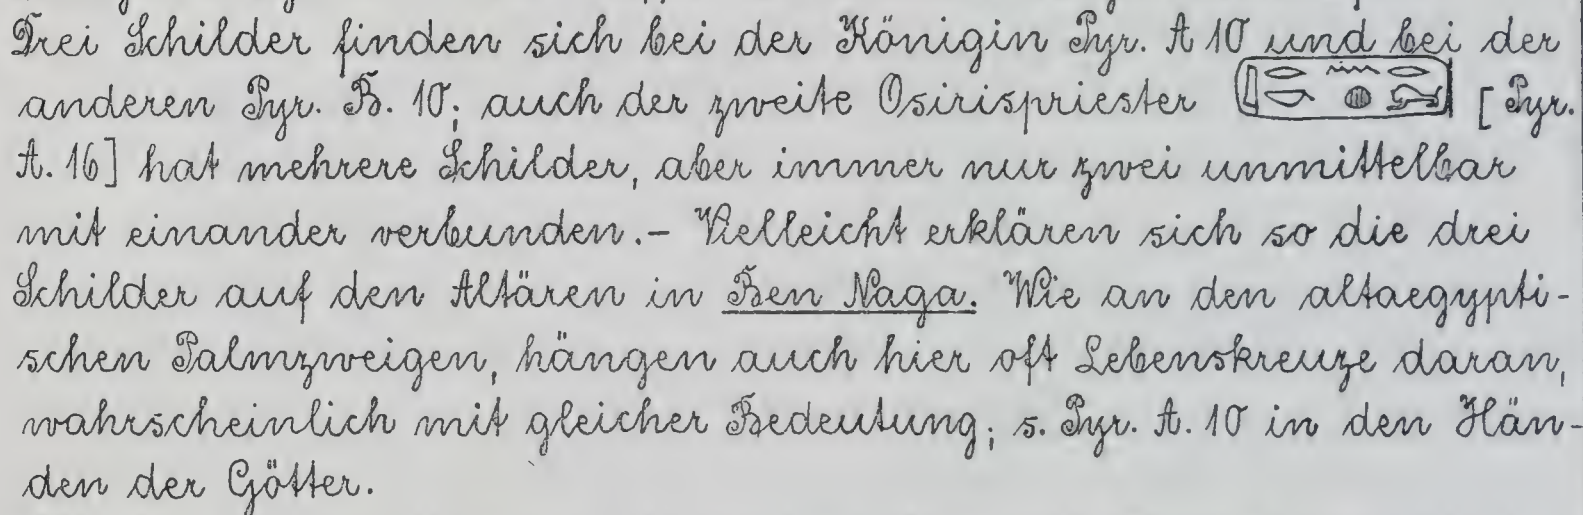 Drei Schilder finden sich bei der Königin Pyr. A 10 und bei der
anderen Pyr. B. 10; auch der zweite Osirispriester [Pyr.
A. 16] hat mehrere Schilder, aber immer nur zwei unmittelbar
mit einander verbunden.– Vielleicht erklären sich so die drei
Schilder auf den Altären in Ben Naga. Wie an den altaegypti-
schen Palmzweigen, hängen auch hier oft Lebenskreuze daran,
wahrscheinlich mit gleicher Bedeutung; s. Pyr. A. 10 in den Hän-
den der Götter.